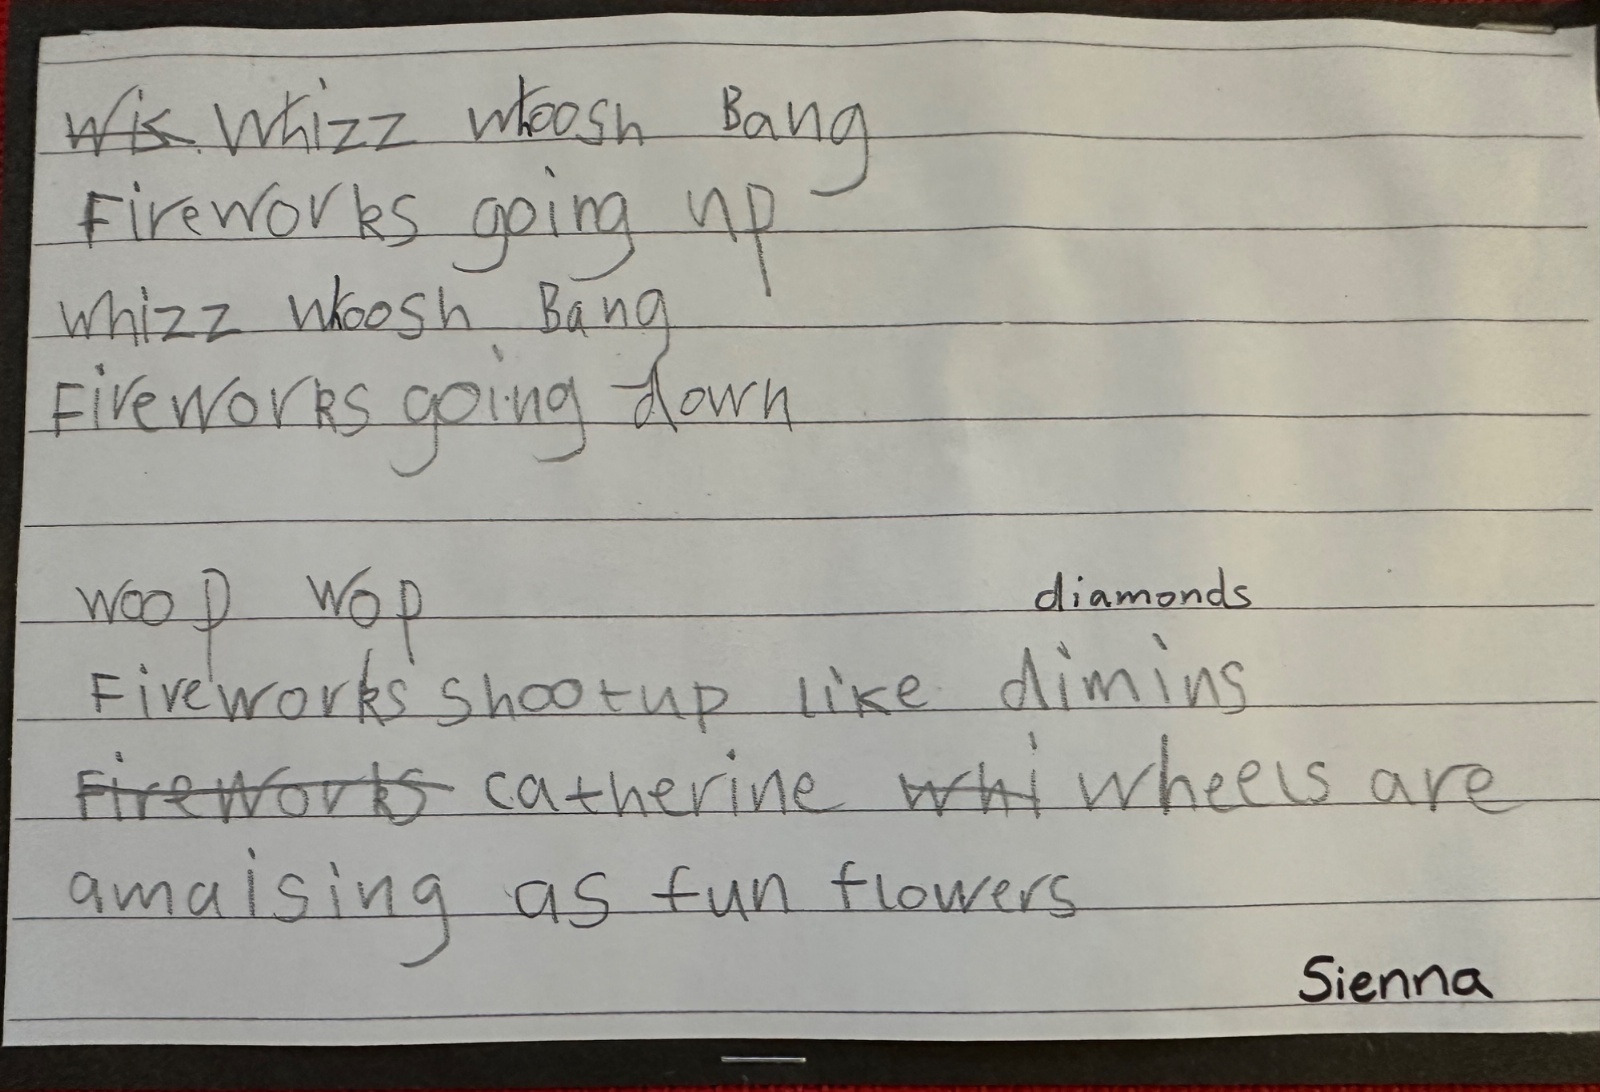 Wis Whizz whoosh Bang
Fireworks going up
Whizz whoosh Bang
Fireworks going down
Woop Wop
diamonds
Fireworks shoot up like dimins
Fireworks catherine whi wheels are
amaising as fun flowers
Sienna